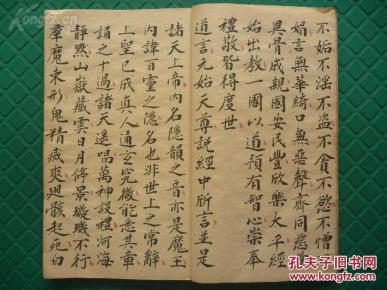 不妬不淫不盜不貪不慾不憎不
言無華綺口無惡聲齊同慈愛
異骨成親國安民豐欣樂太平經
始出教一國以道預有智心崇奉
禮敬皆得度世
道言元始天尊說經中所言並是
諸天上帝内名隱韻之音亦是魔王
内諱百靈之隱名也非世上之常辭
上聖已成真人通玄究微能悉其章
誦之十過諸天遙唱萬神設禮河海
靜黙山嶽藏雲日月停景璇璣不行
羣魔束形鬼精滅爽迴骸起死白